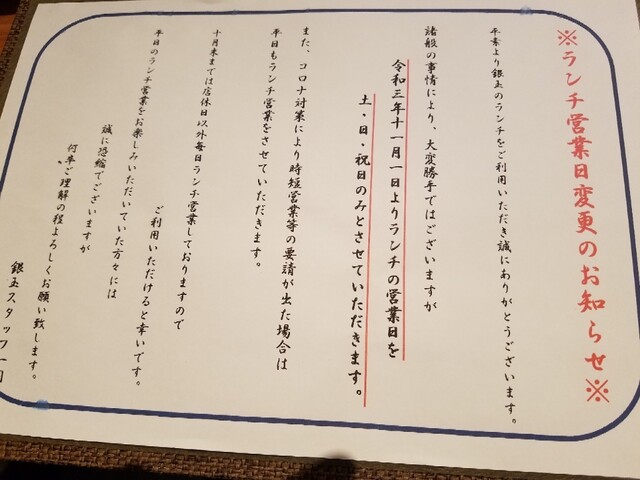 ※ランチ営業日変更のお知らせ※
平素より銀玉のランチをご利用いただき誠にありがとうございます。
諸般の事情により、大変勝手ではございますが
令和三年十一月一日よりランチの営業日を
土・日・祝日のみとさせていただきます。
また、コロナ対策により時短営業等の要請が出た場合は
平日もランチ営業をさせていただきます。
十月末までは店休日以外毎日ランチ営業しておりますので
ご利用いただけると幸いです。
平日のランチ営業をお楽しみいただいていた方々には
誠に恐縮でございますが
何卒ご理解の程よろしくお願い致します。
銀玉スタッフ一同